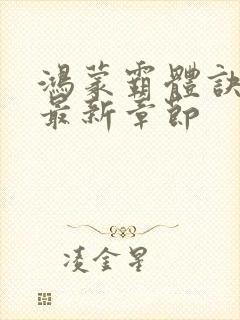 鴻蒙霸體訣
最新章節
凌金星